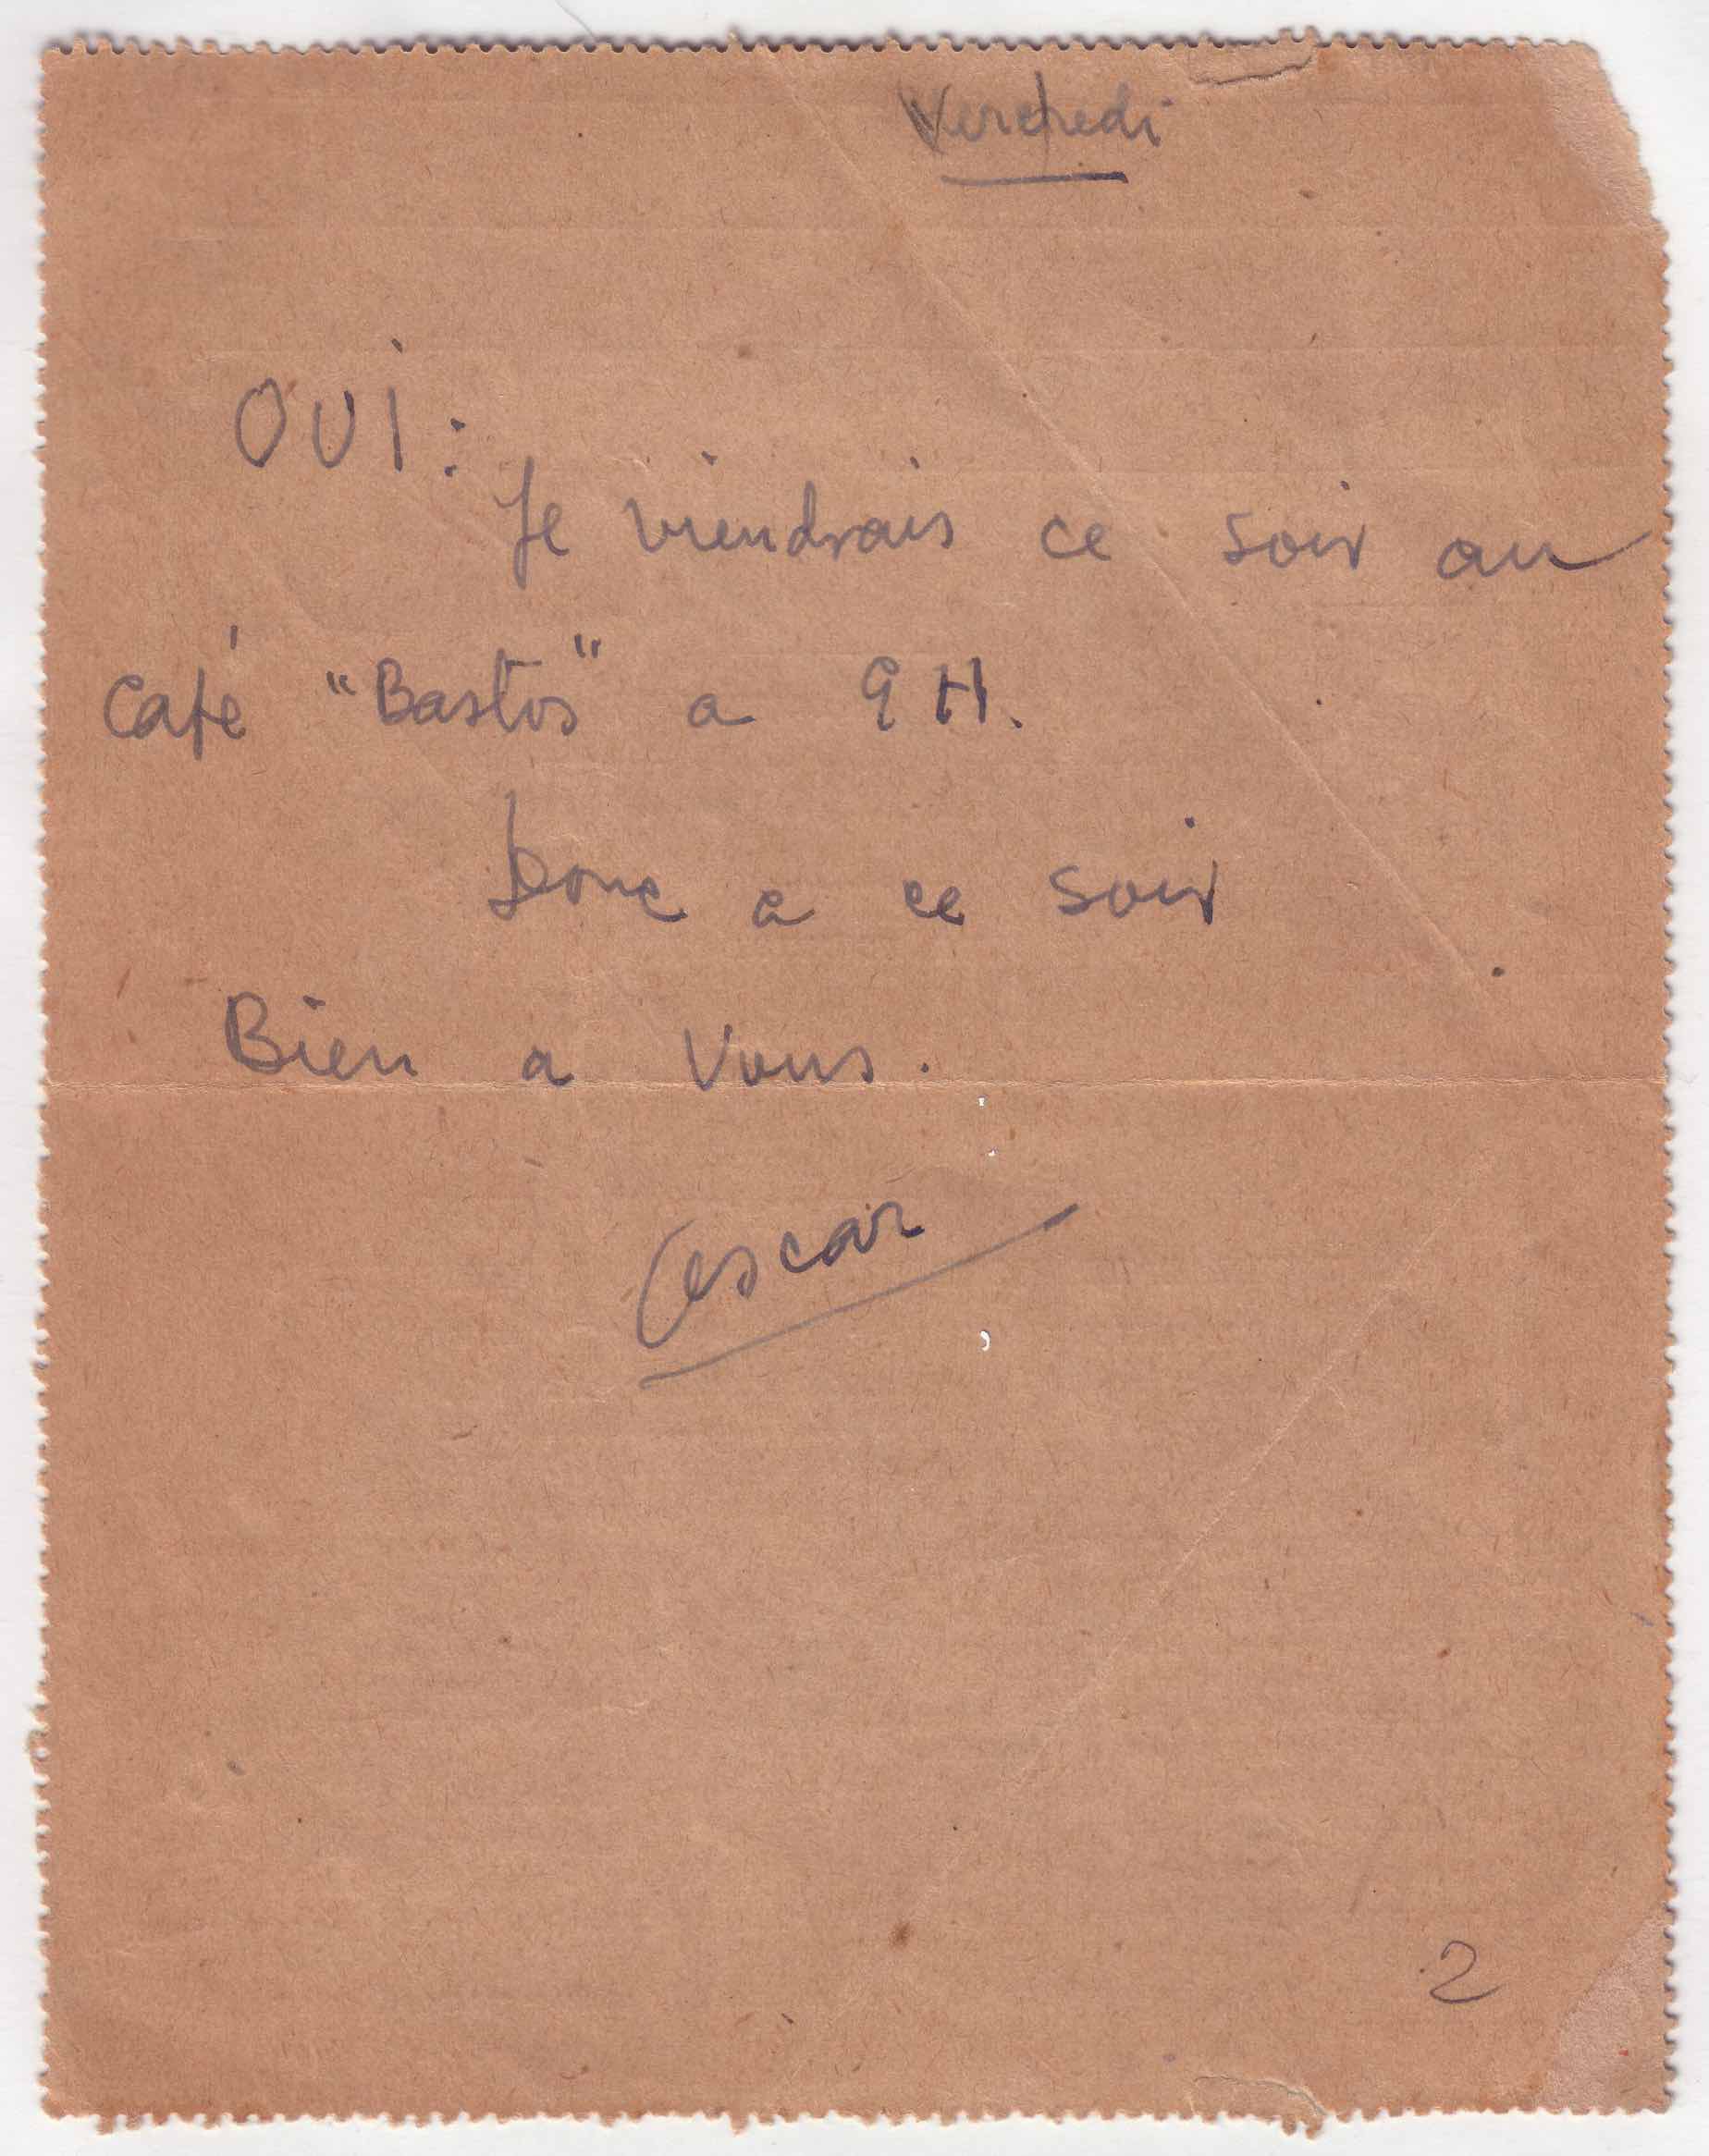 Vendredi
OUI :
Je viendrais ce soir au
Café "Bastos" a 9 H.
Donc a ce soir
Bien a Vous.
Oescar
2